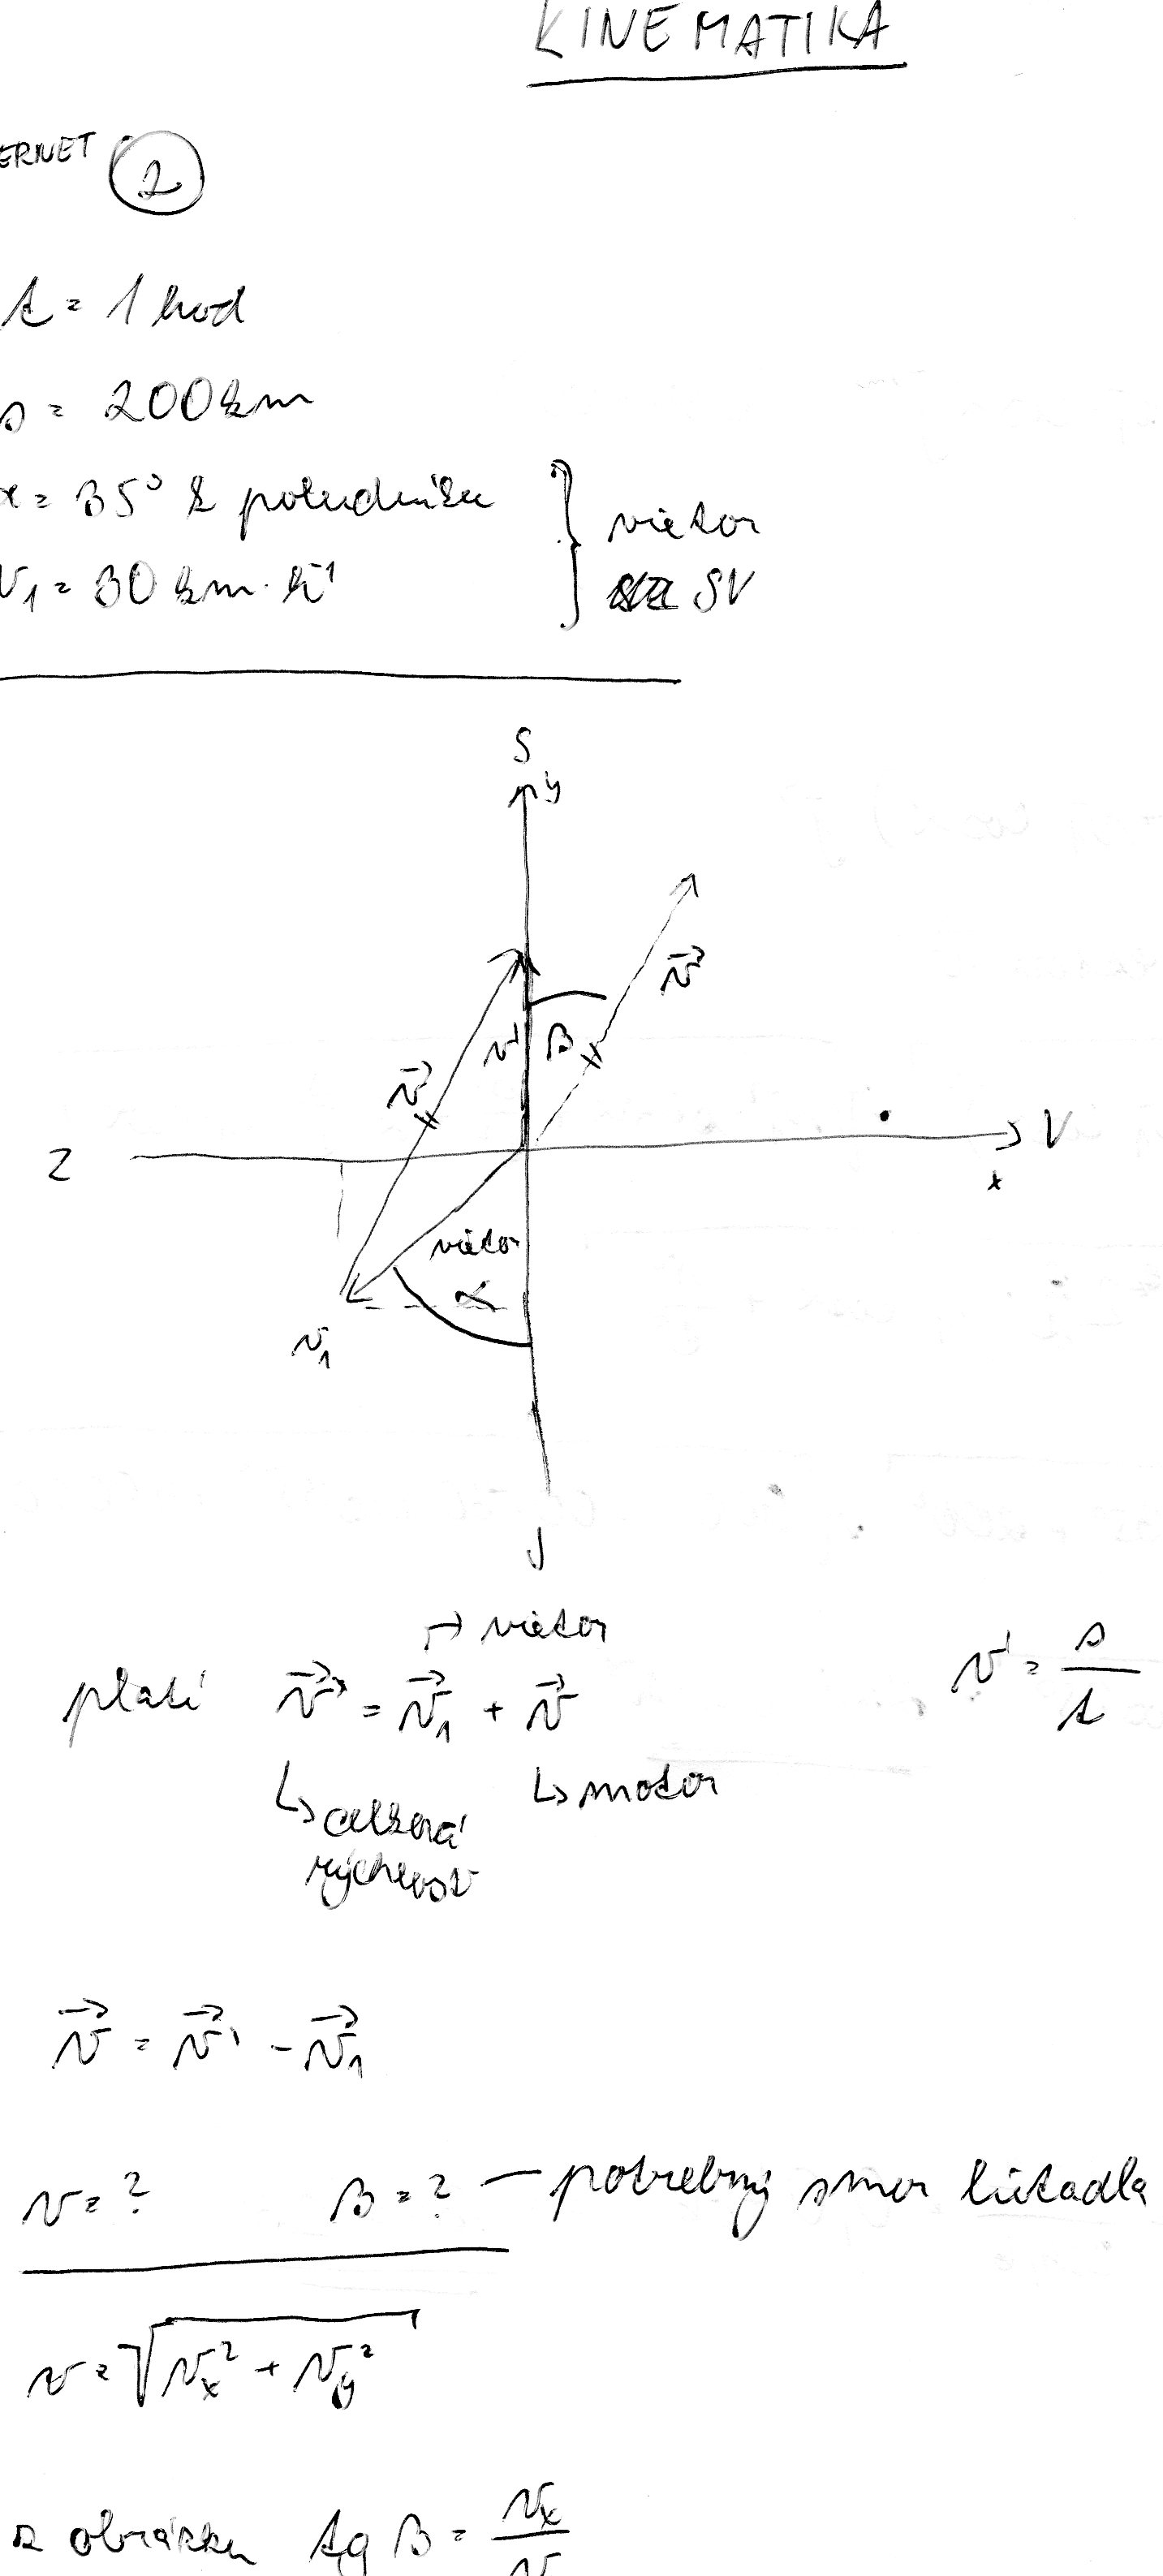 KINEMATIKA
ERNET 2
t = 1 hod
s = 200 km
α = 35° k poludníku } vietor
v₁ = 30 km·h⁻¹ SV
S
y
v⃗
v' β
v⃗
Z V
x
vietor
α
v₁
J
↱ vietor
platí v⃗' = v⃗₁ + v⃗ v' = s/t
↳ celková ↳ motor
rýchlosť
v⃗ = v⃗' - v⃗₁
v = ? β = ? — potrebný smer lietadla
v = √(vₓ² + v_y²)
z obrázku tg β = vₓ/v